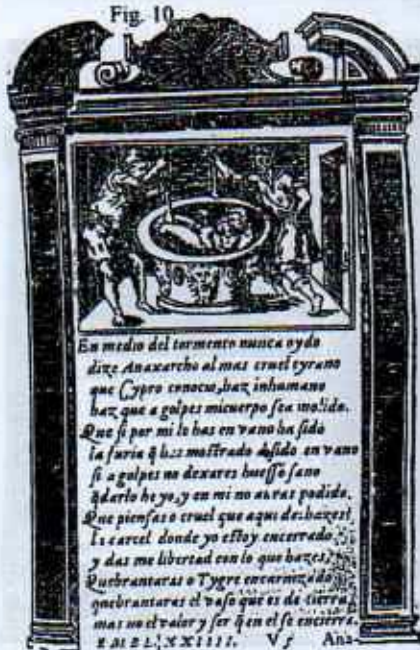 Fig. 10
En medio del tormento nunca oydo
dize Anaxarcho al mas cruel tyrano
que Cypro conocio, haz inhumano
haz que a golpes mi cuerpo sea molido.
Que si por mi lo has en vano ha sido
la furia q̃ has mostrado sido en vano
si a golpes no dexares huesso sano
q̃darlo he yo, y en mi no auras podido.
Que piensas o cruel que aqui deshazes?
la carcel donde yo estoy encerrado
y das me libertad con lo que hazes,
Quebrantaras o Tygre encarnizado
quebrantaras el vaso que es de tierra,
mas no el valor y ser q̃ en el se encierra.
EMBL. XXIIII. V5 Ana-